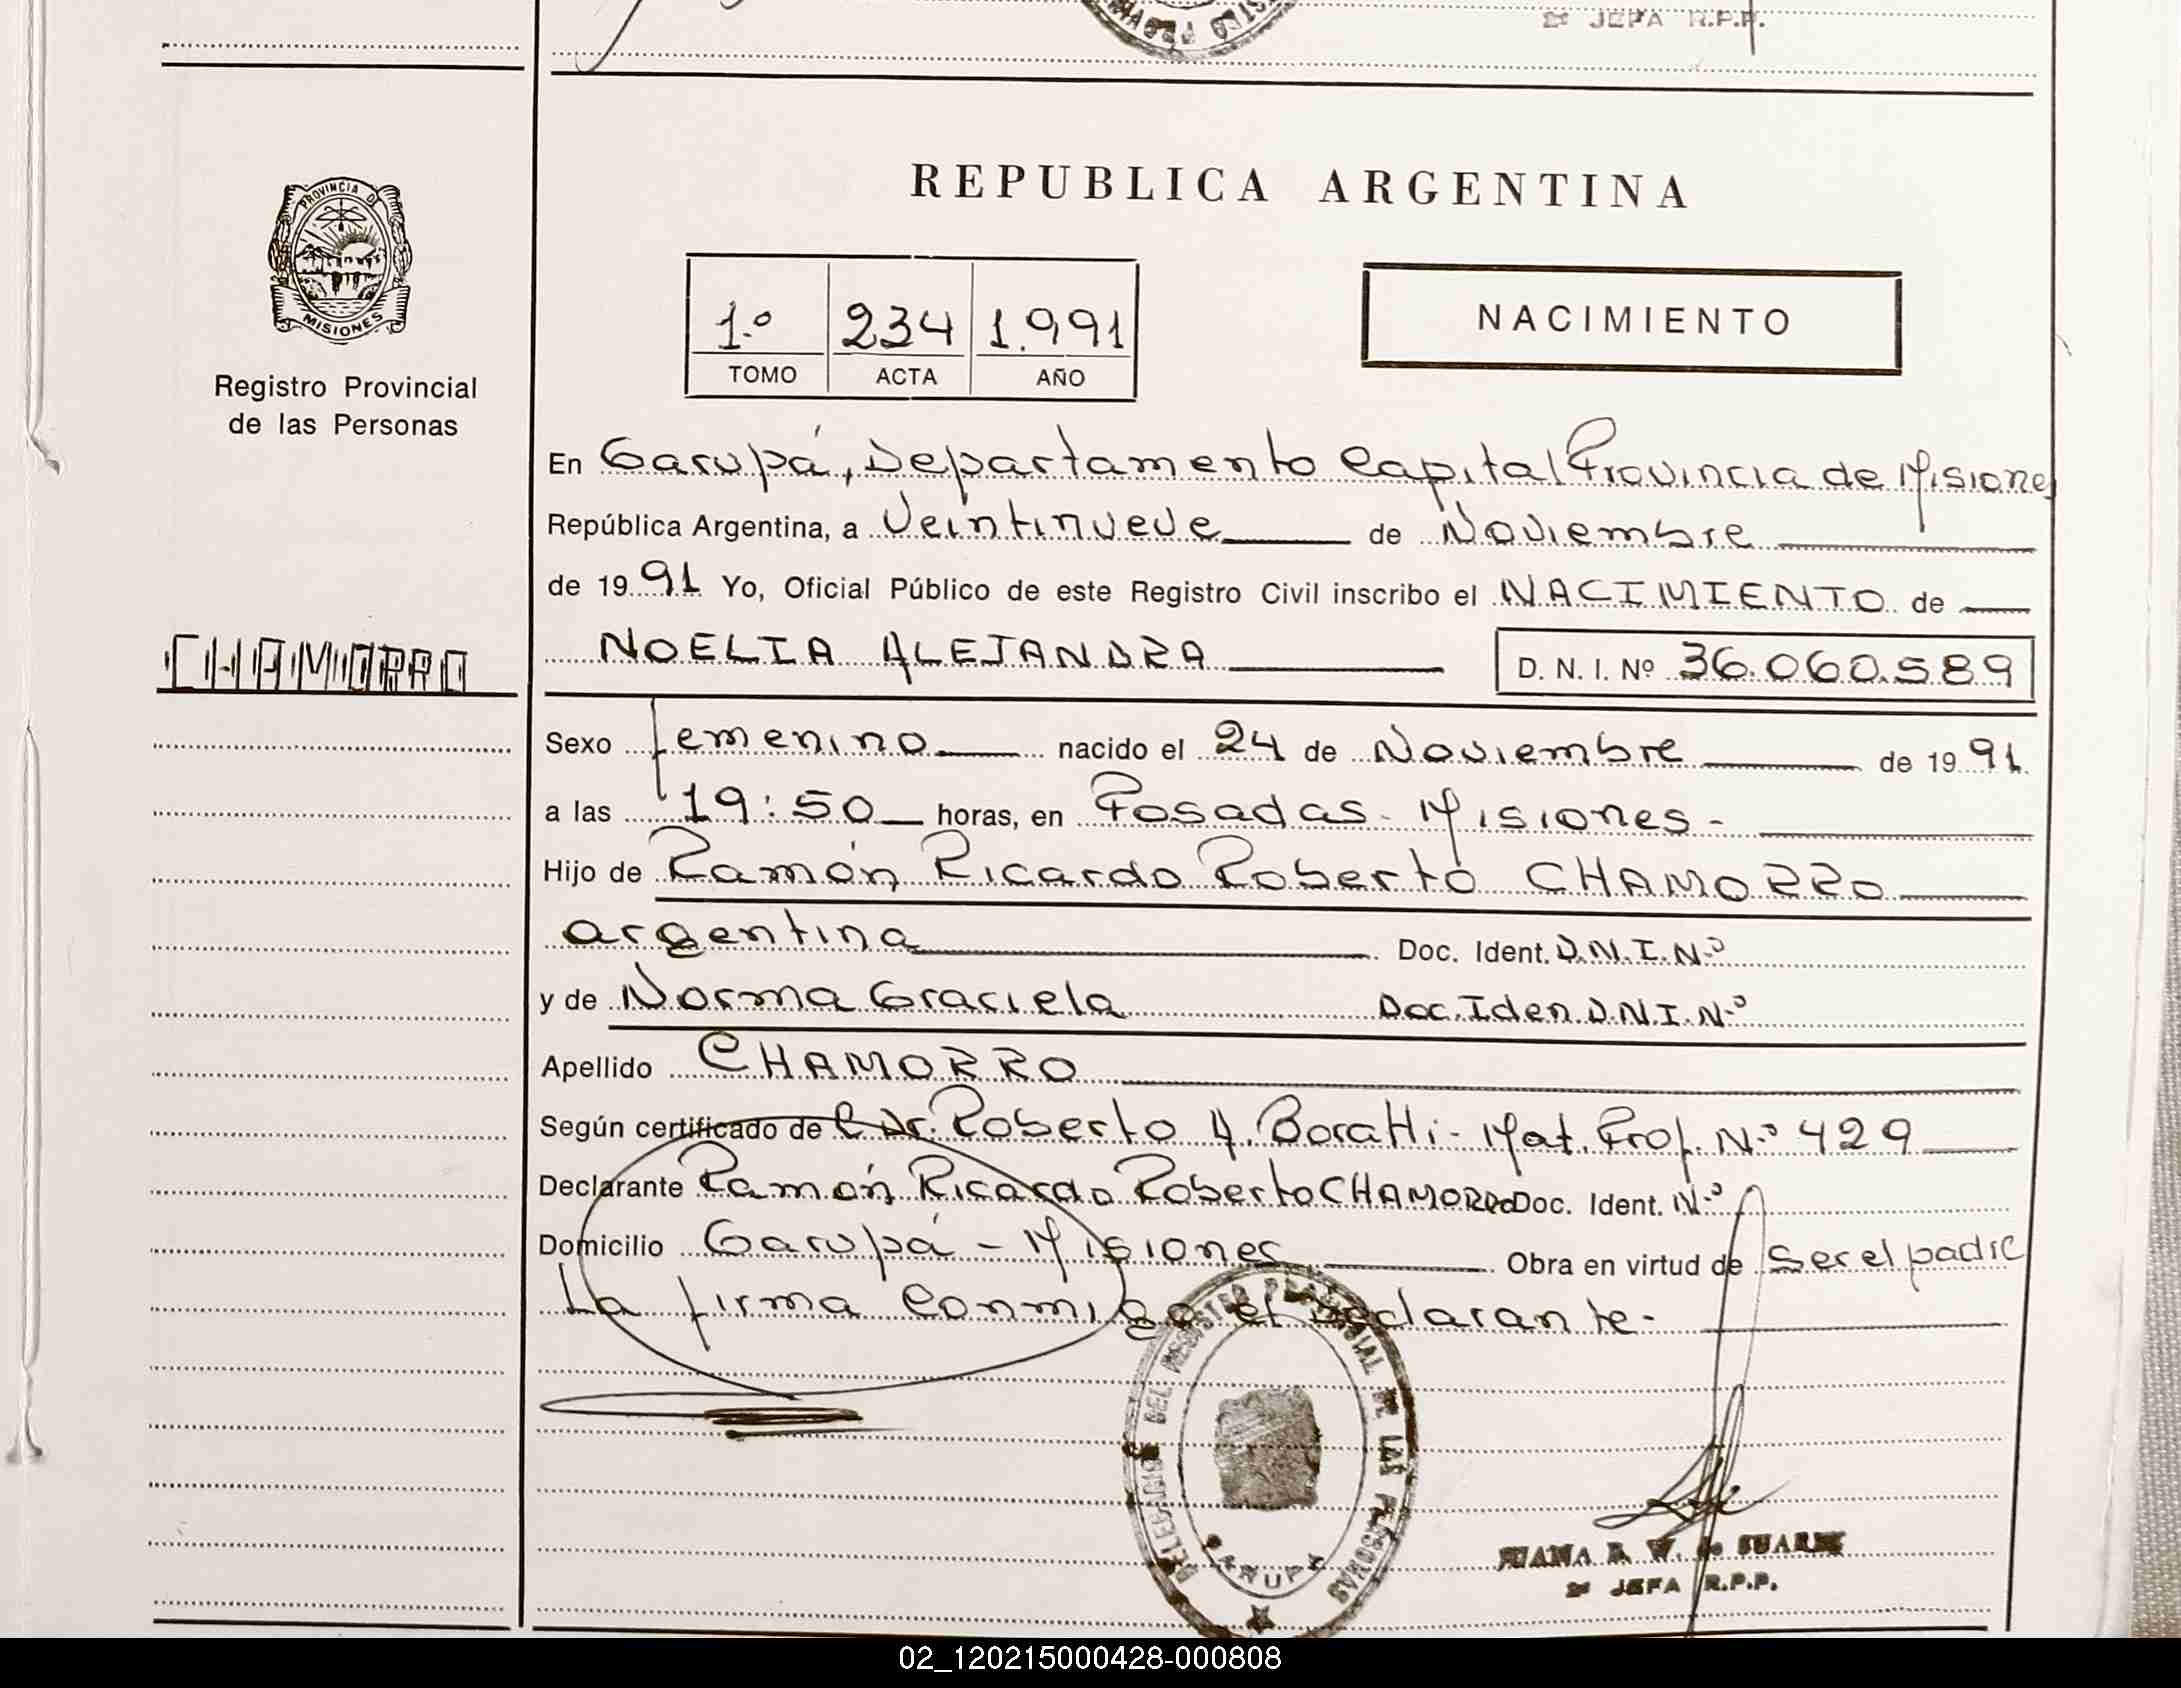 2º JEFA R.P.P.
PROVINCIA D
MISIONES
Registro Provincial
de las Personas
CHAMORRO
REPUBLICA ARGENTINA
1.º 234 1.991
TOMO ACTA AÑO
NACIMIENTO
En Garupá, Departamento Capital Provincia de Misiones
República Argentina, a Veintinueve de Noviembre
de 19 91 Yo, Oficial Público de este Registro Civil inscribo el NACIMIENTO de
NOELIA ALEJANDRA D. N. I. Nº 36.060.589
Sexo femenino nacido el 24 de Noviembre de 19 91.
a las 19:50 horas, en Posadas - Misiones -
Hijo de Ramón Ricardo Roberto CHAMORRO
argentina Doc. Ident. D.N.I. Nº
y de Norma Graciela Doc. Iden. D.N.I. Nº
Apellido CHAMORRO
Según certificado de Dr. Roberto A. Boratti - Mat. Prof. Nº 429
Declarante Ramón Ricardo Roberto CHAMORRO Doc. Ident. Nº
Domicilio Garupá - Misiones Obra en virtud de ser el padre
La firma conmigo el declarante.-
DELEGACION DEL REGISTRO PROVINCIAL DE LAS PERSONAS
GARUPA
JUANA R. W. de SUAREZ
2º JEFA R.P.P.
02_120215000428-000808